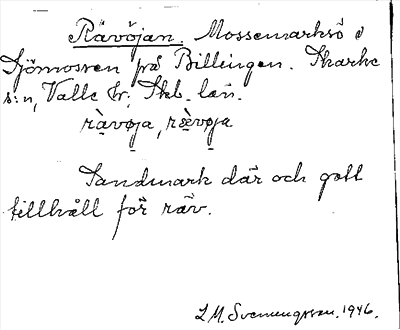 Rävöjan. Mossemarksö i
Sjömossen på Billingen. Skarke
s:n, Valle hr; Skb. län.
rävøja, rävøja
Sandmark där och gott
tillhåll för räv.
S.M. Svenungsson. 1946.